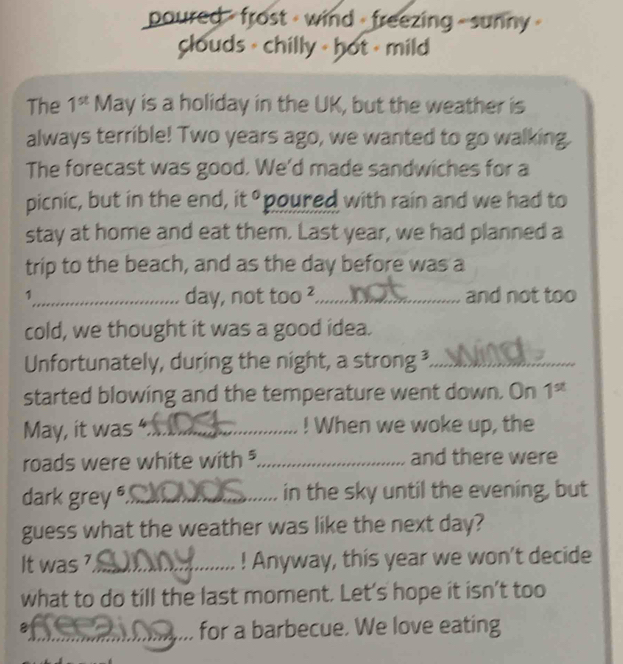 poured • frost • wind • freezing • sunny •
clouds • chilly • hot • mild
The 1st May is a holiday in the UK, but the weather is
always terrible! Two years ago, we wanted to go walking.
The forecast was good. We'd made sandwiches for a
picnic, but in the end, it ⁰poured with rain and we had to
stay at home and eat them. Last year, we had planned a
trip to the beach, and as the day before was a
¹.............................. day, not too ²......not............ and not too
cold, we thought it was a good idea.
Unfortunately, during the night, a strong ³...wind............
started blowing and the temperature went down. On 1st
May, it was ⁴...frost............! When we woke up, the
roads were white with ⁵.............................. and there were
dark grey ⁶...clouds...... in the sky until the evening, but
guess what the weather was like the next day?
It was ⁷...sunny.........! Anyway, this year we won't decide
what to do till the last moment. Let's hope it isn't too
⁸...freezing...... for a barbecue. We love eating